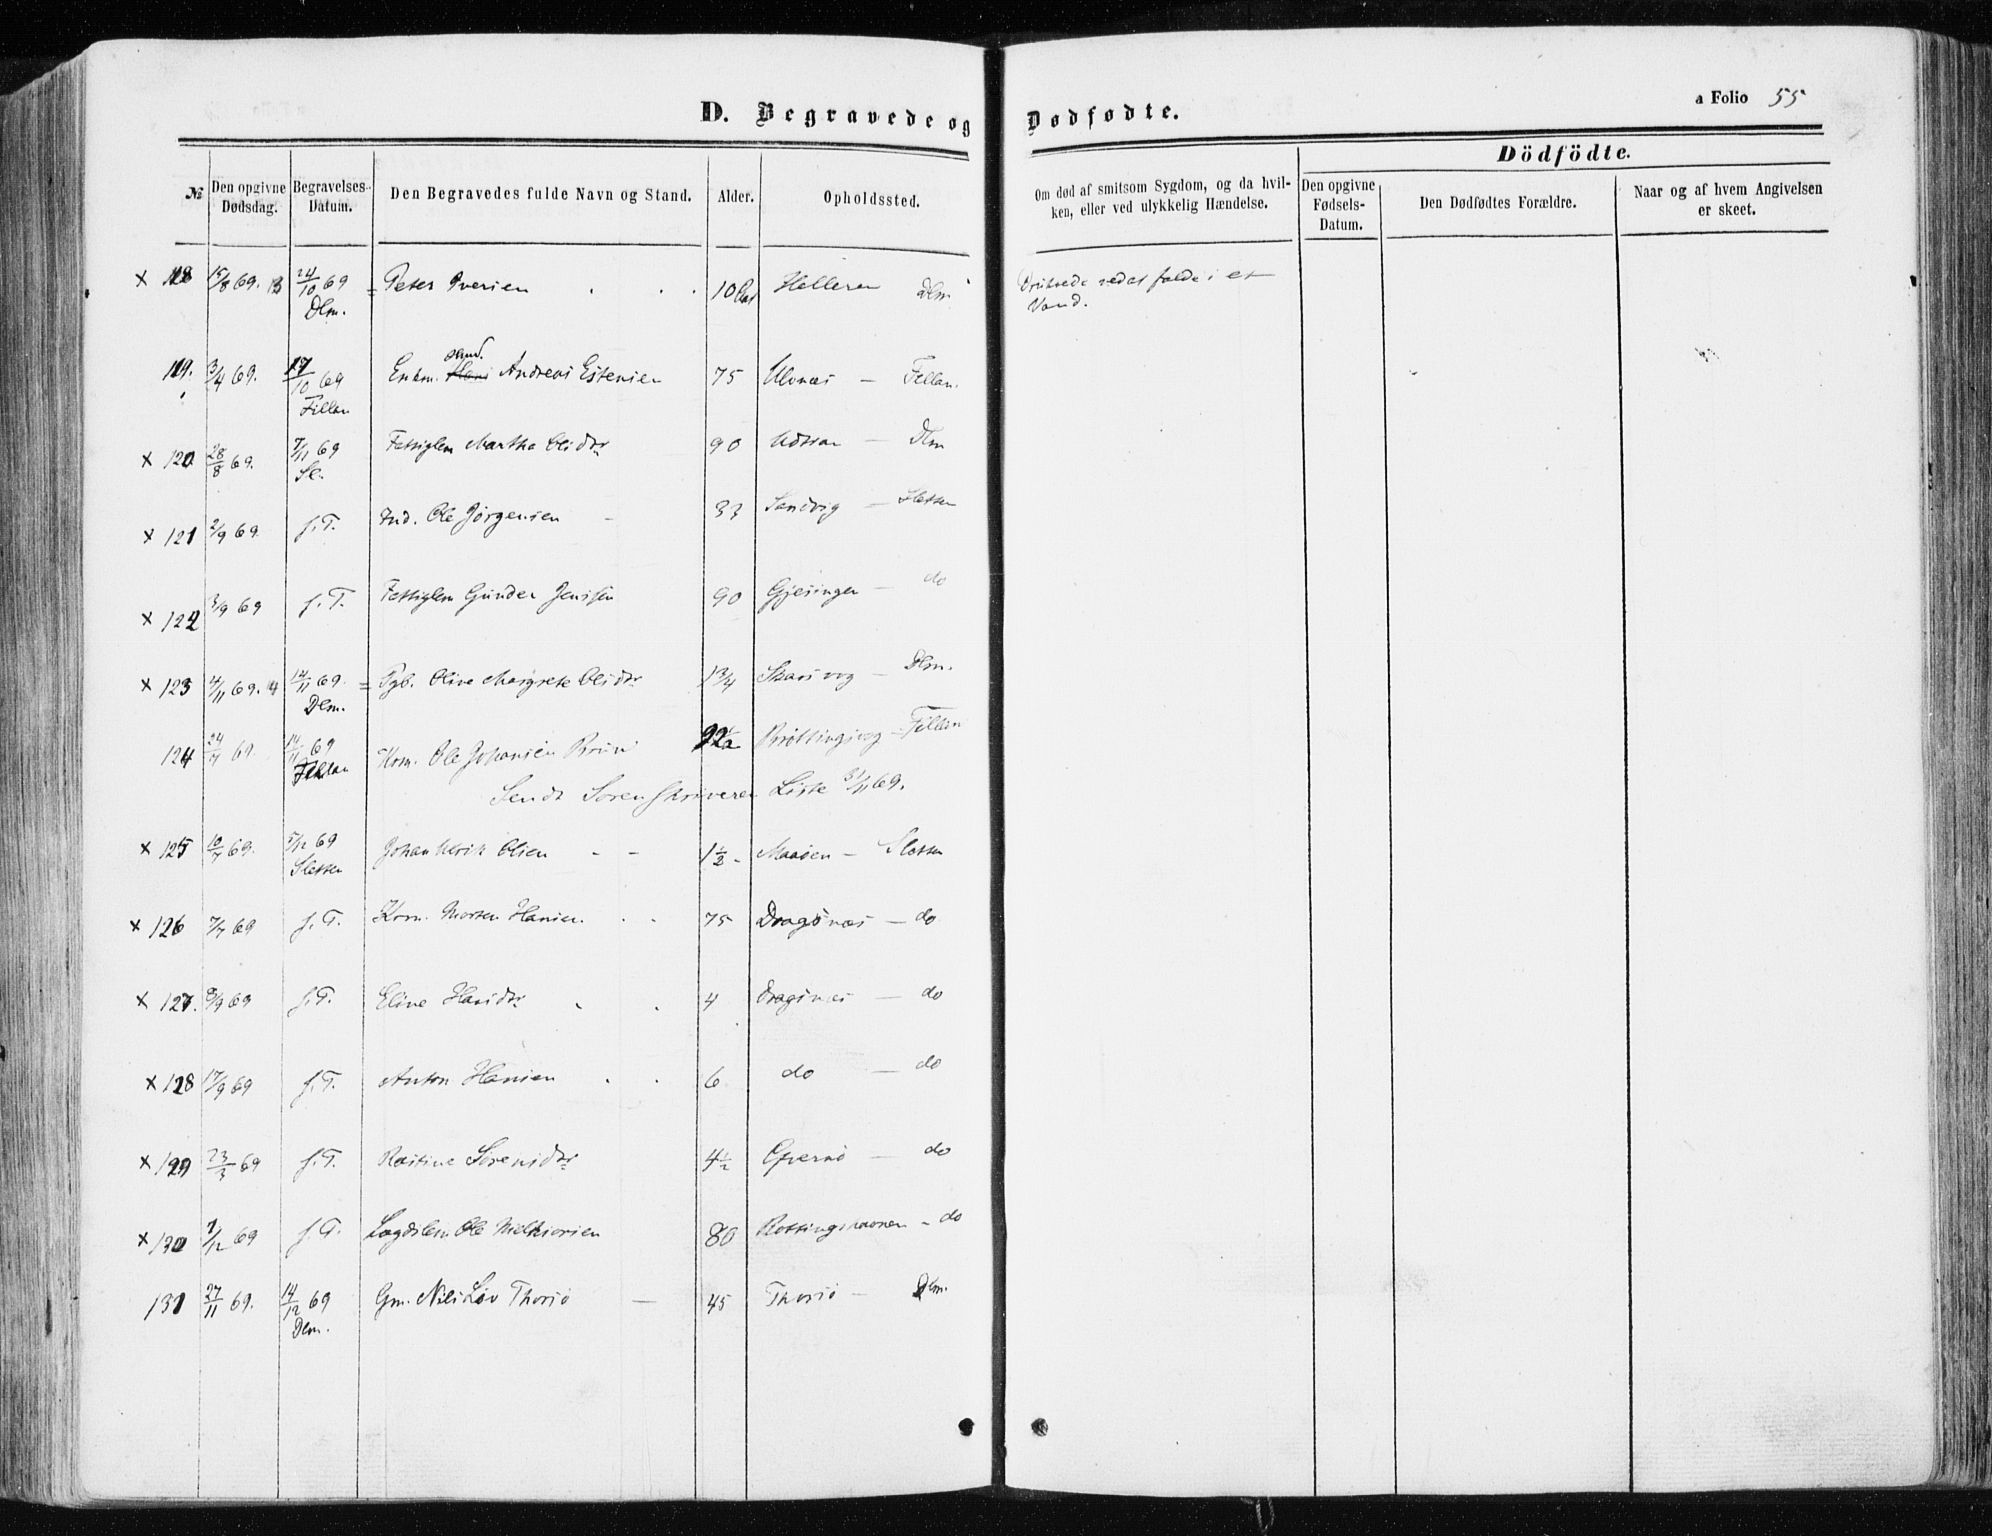 D. Begravede og Dødfødte.
a Folio 55
Dödfödte.
№ Den opgivne Dødsdag. Begravelses-Datum. Den Begravedes fulde Navn og Stand. Alder. Opholdssted. Om død af smitsom Sygdom, og da hvilken, eller ved ulykkelig Hændelse. Den opgivne Fødsels-Datum. Den Dødfødtes Forældre. Naar og af hvem Angivelsen er skeet.
x 118 15/8 69. 24/10 69 = Peter Iversen 10 Helleren Dlm
Dlm.
Vand.
119. 3/4 69. 17/10 69 Enkm. Andreas Estensen 75 Ulvnæs — Fillan.
Fillan
x 120 28/8 69. 7/11 69 Fattiglem Martha Olsdtr 90 Udsran — Dlm
Sl.
x 121 2/9 69. s. T. Ind. Ole Jørgensen - 33 Sandvig — Sletten
x 122 3/9 69 s. T. Fattiglem Gunder Jenssen 90 Gjesingen — do
x 123 4/11 69. 14/11 69. = Pgb. Oline Margrete Olsdtr 1 3/4 Skarsvog — Dlm.
Dlm.
124 24/7 69. 14/11 69 Krm. Ole Johansen Bruun — Fillan
Fillan
Sendt Sorenskriveren Liste 31/11 69.
x 125 10/7 69. 5/12 69 Johan Olsen - - 1 1/2 - Maasen — Sletten
Sletten
x 126 7/7 69 s. T. Krm. Morten Hansen 75 Dragsnæs — do
x 127. 8/9 69 s. T. Eline Hansdtr 4 Dragsnæs — do
x 128 17/9 69 s. T. Anton Hansen 6 do — do
x 129 23/3 69 s. T. Sørensdtr 4 1/2 — do
x 130 1/12 69 s. T. Lægdslem Ole Melkiorsen 80 - do
131 27/11 69. 14/12 69 Gm. Nils Løv Thorsø — 45 Thorsø — Dlm.
Dlm.